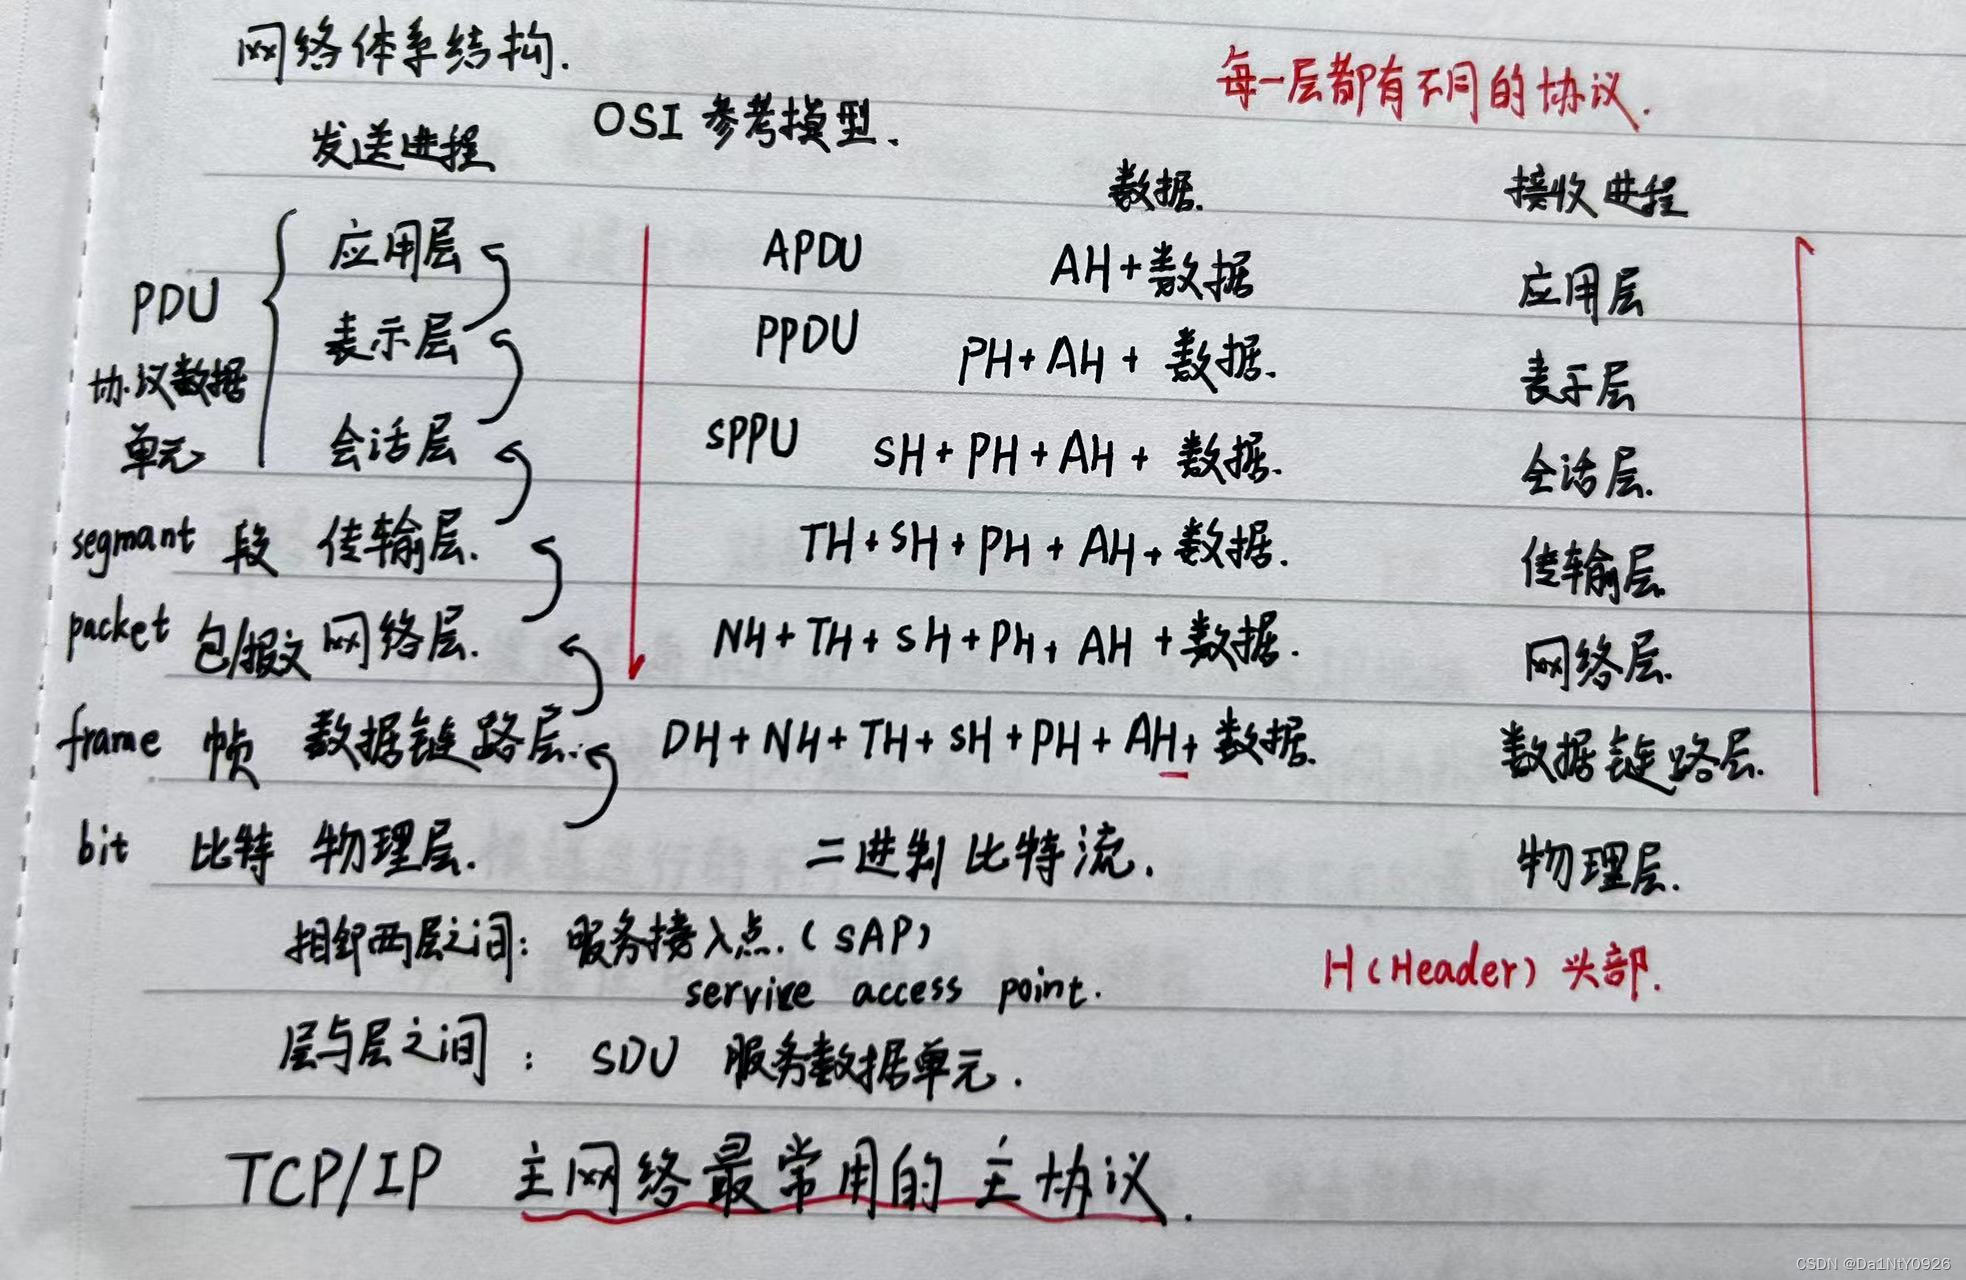 网络体系结构.
每一层都有不同的协议.
OSI 参考模型.
发送进程 数据. 接收进程
应用层 APDU AH+数据 应用层
PDU 表示层 PPDU PH+AH+数据. 表示层
协议数据
单元 会话层 SPPU SH+PH+AH+数据. 会话层.
segmant 段 传输层. TH+SH+PH+AH+数据. 传输层.
packet 包/报文 网络层. NH+TH+SH+PH+AH+数据. 网络层.
frame 帧 数据链路层. DH+NH+TH+SH+PH+AH+数据. 数据链路层.
bit 比特 物理层. 二进制比特流. 物理层.
相邻两层之间: 服务接入点.(SAP)
service access point.
H(Header)头部.
层与层之间: SDU 服务数据单元.
TCP/IP 主网络最常用的主协议.
CSDN @Da1NtY0926